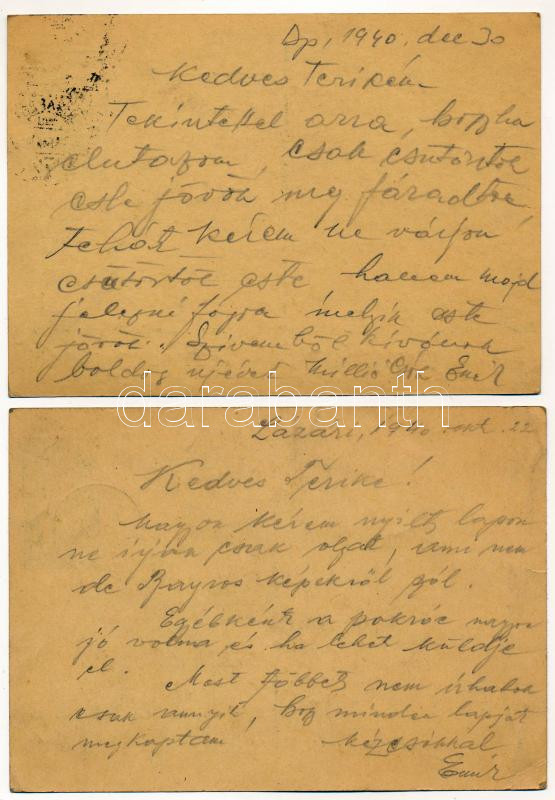 Bp, 1940. dec 30
Kedves Terikém
Tekintettel arra, hogy ha
elutazom, csak csütörtök
este jövök meg fáradtan
tehát kérem ne várjon
csütörtök este hanem majd
jelezni fogom melyik este
jövök. Szivemből kívánok
boldog ujévet Millió Emir
darabanth
Lazári, 1940. okt. 22
Kedves Terike!
Nagyon kérem nyilt lapon
ne irjon csak olyat, ami nem
de képekről szól.
Egébként a pokróc nagyon
jó volna, és ha lehet küldje
el.
Most többet nem irhatok
csak annyit, hogy minden lapját
megkaptam kézcsókkal
Emir